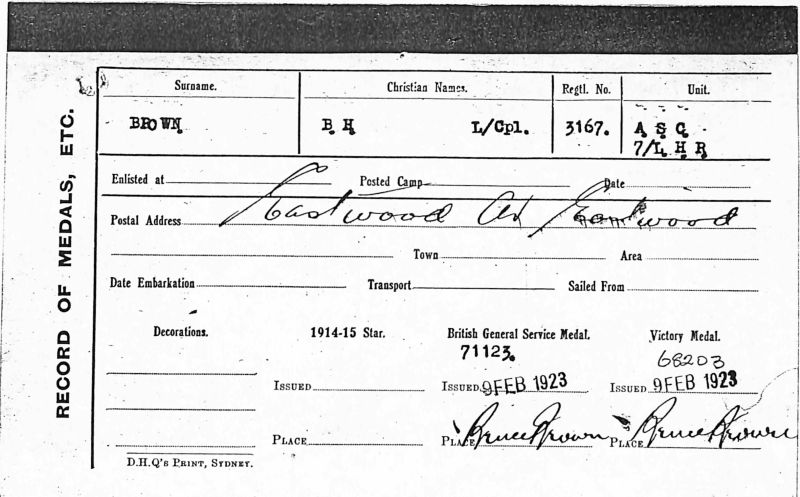 RECORD OF MEDALS, ETC.
Surname. Christian Names. Regtl. No. Unit.
BROWN B H L/Cpl. 3167. A S C
7/L H R
Enlisted at Posted Camp Date
Postal Address Eastwood Av Eastwood
Town Area
Date Embarkation Transport Sailed From
Decorations. 1914-15 Star. British General Service Medal. Victory Medal.
71123. 68203
ISSUED ISSUED 9 FEB 1923 ISSUED 9 FEB 1923
PLACE PLACE Bruce Brown PLACE Bruce Brown
D.H.Q's PRINT, SYDNEY.